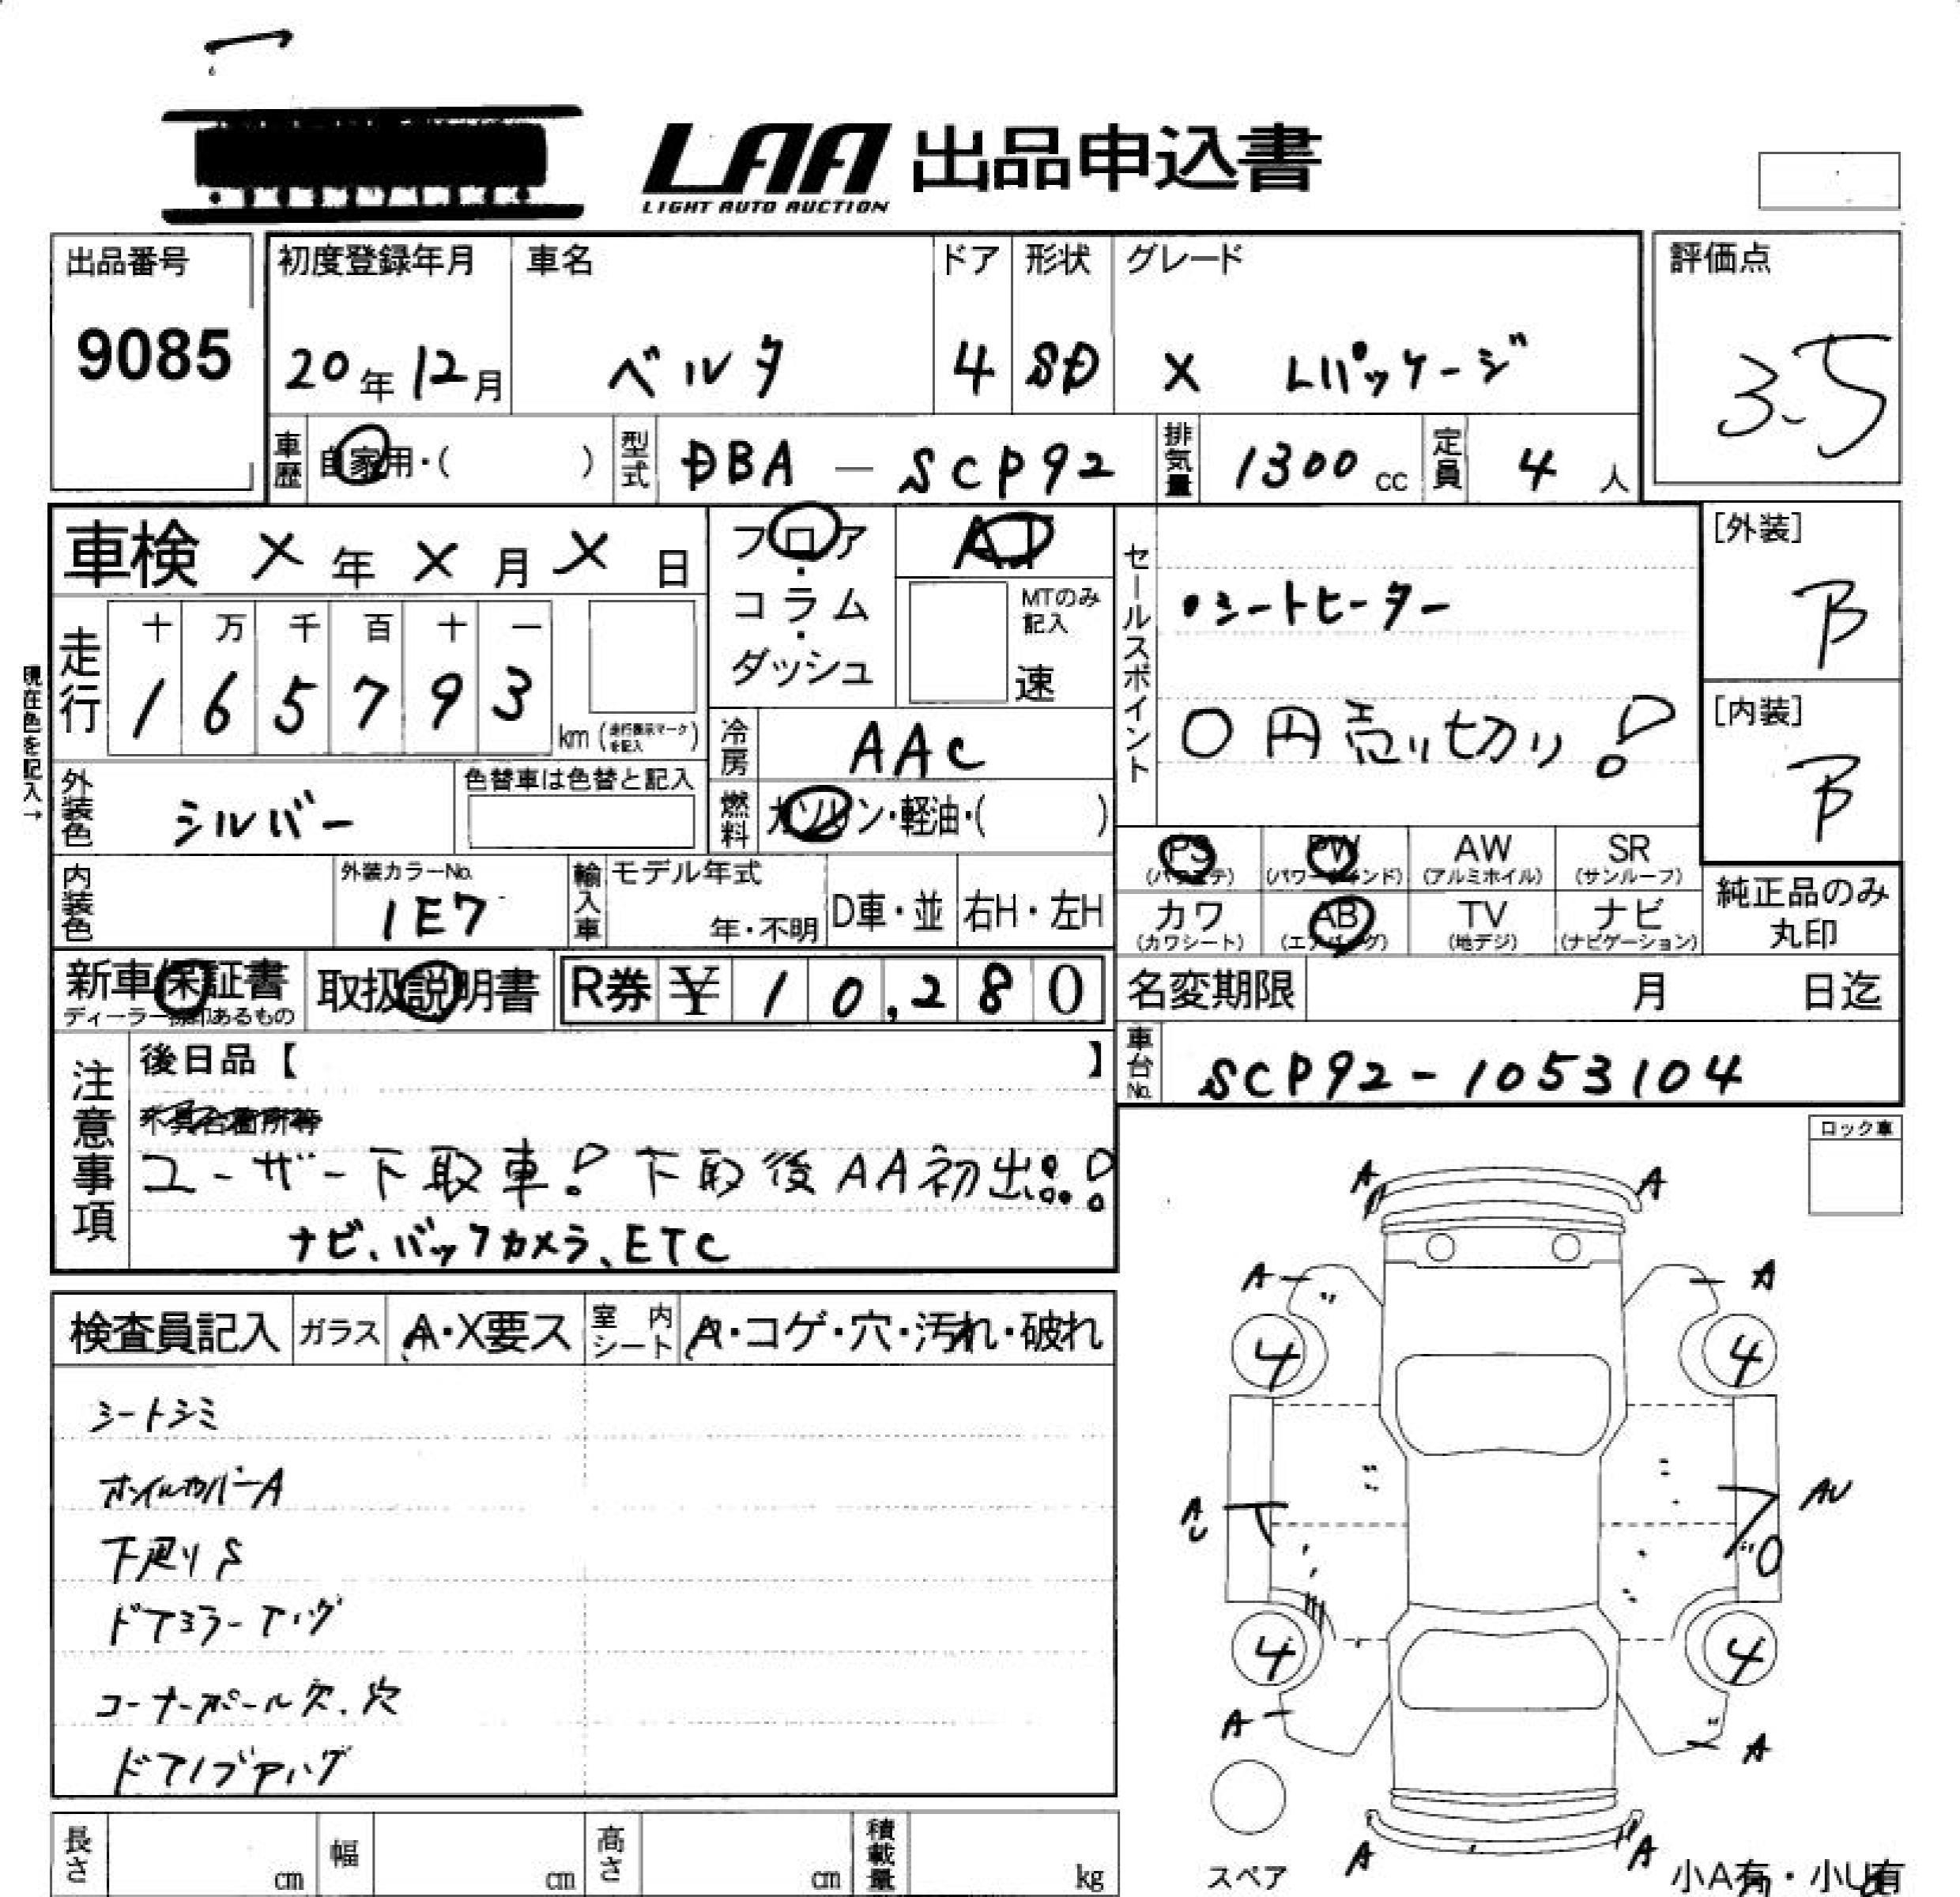 LAA 出品申込書
LIGHT AUTO AUCTION
出品番号 初度登録年月 車名 ドア 形状 グレード 評価点
9085 20年12月 ベルタ 4 SD X Lパッケージ 3.5
車歴 自家用・( ) 型式 DBA-SCP92 排気量 1300cc 定員 4人
車検 X年X月X日 フロア・コラム・ダッシュ AT
MTのみ記入 速
現在色を記入→
走行 十 万 千 百 十 一
1 6 5 7 9 3 km (走行表示マークを記入)
冷房 AAC
外装色 シルバー 色替車は色替と記入
燃料 ガソリン・軽油・( )
セールスポイント
・シートヒーター
0円売り切り!
[外装] B
[内装] B
内装色 外装カラーNo. 1E7 輸入車 モデル年式 年・不明 D車・並 右H・左H
PS (パワステ) PW (パワーウインド) AW (アルミホイル) SR (サンルーフ)
カワ (カワシート) AB (エアバッグ) TV (地デジ) ナビ (ナビゲーション)
純正品のみ丸印
新車保証書 ディーラー捺印あるもの 取扱説明書 R券 ¥ 10,280
名変期限 月 日迄
車台No. SCP92-1053104
注意事項
後日品【 】
不具合箇所等
ユーザー下取車! 下取後AA初出!!
ナビ、バックカメラ、ETC
ロック車
検査員記入 ガラス A・X要ス 室内シート A・コゲ・穴・汚れ・破れ
シートシミ
ホイルカバーA
下廻りS
ドアミラーアハゲ
コーナーポール欠、穴
ドアノブアハゲ
A A
A A
4 4
AU AU
4 4
A A
A A
スペア
小A有・小U有
長さ cm 幅 cm 高さ cm 積載量 kg